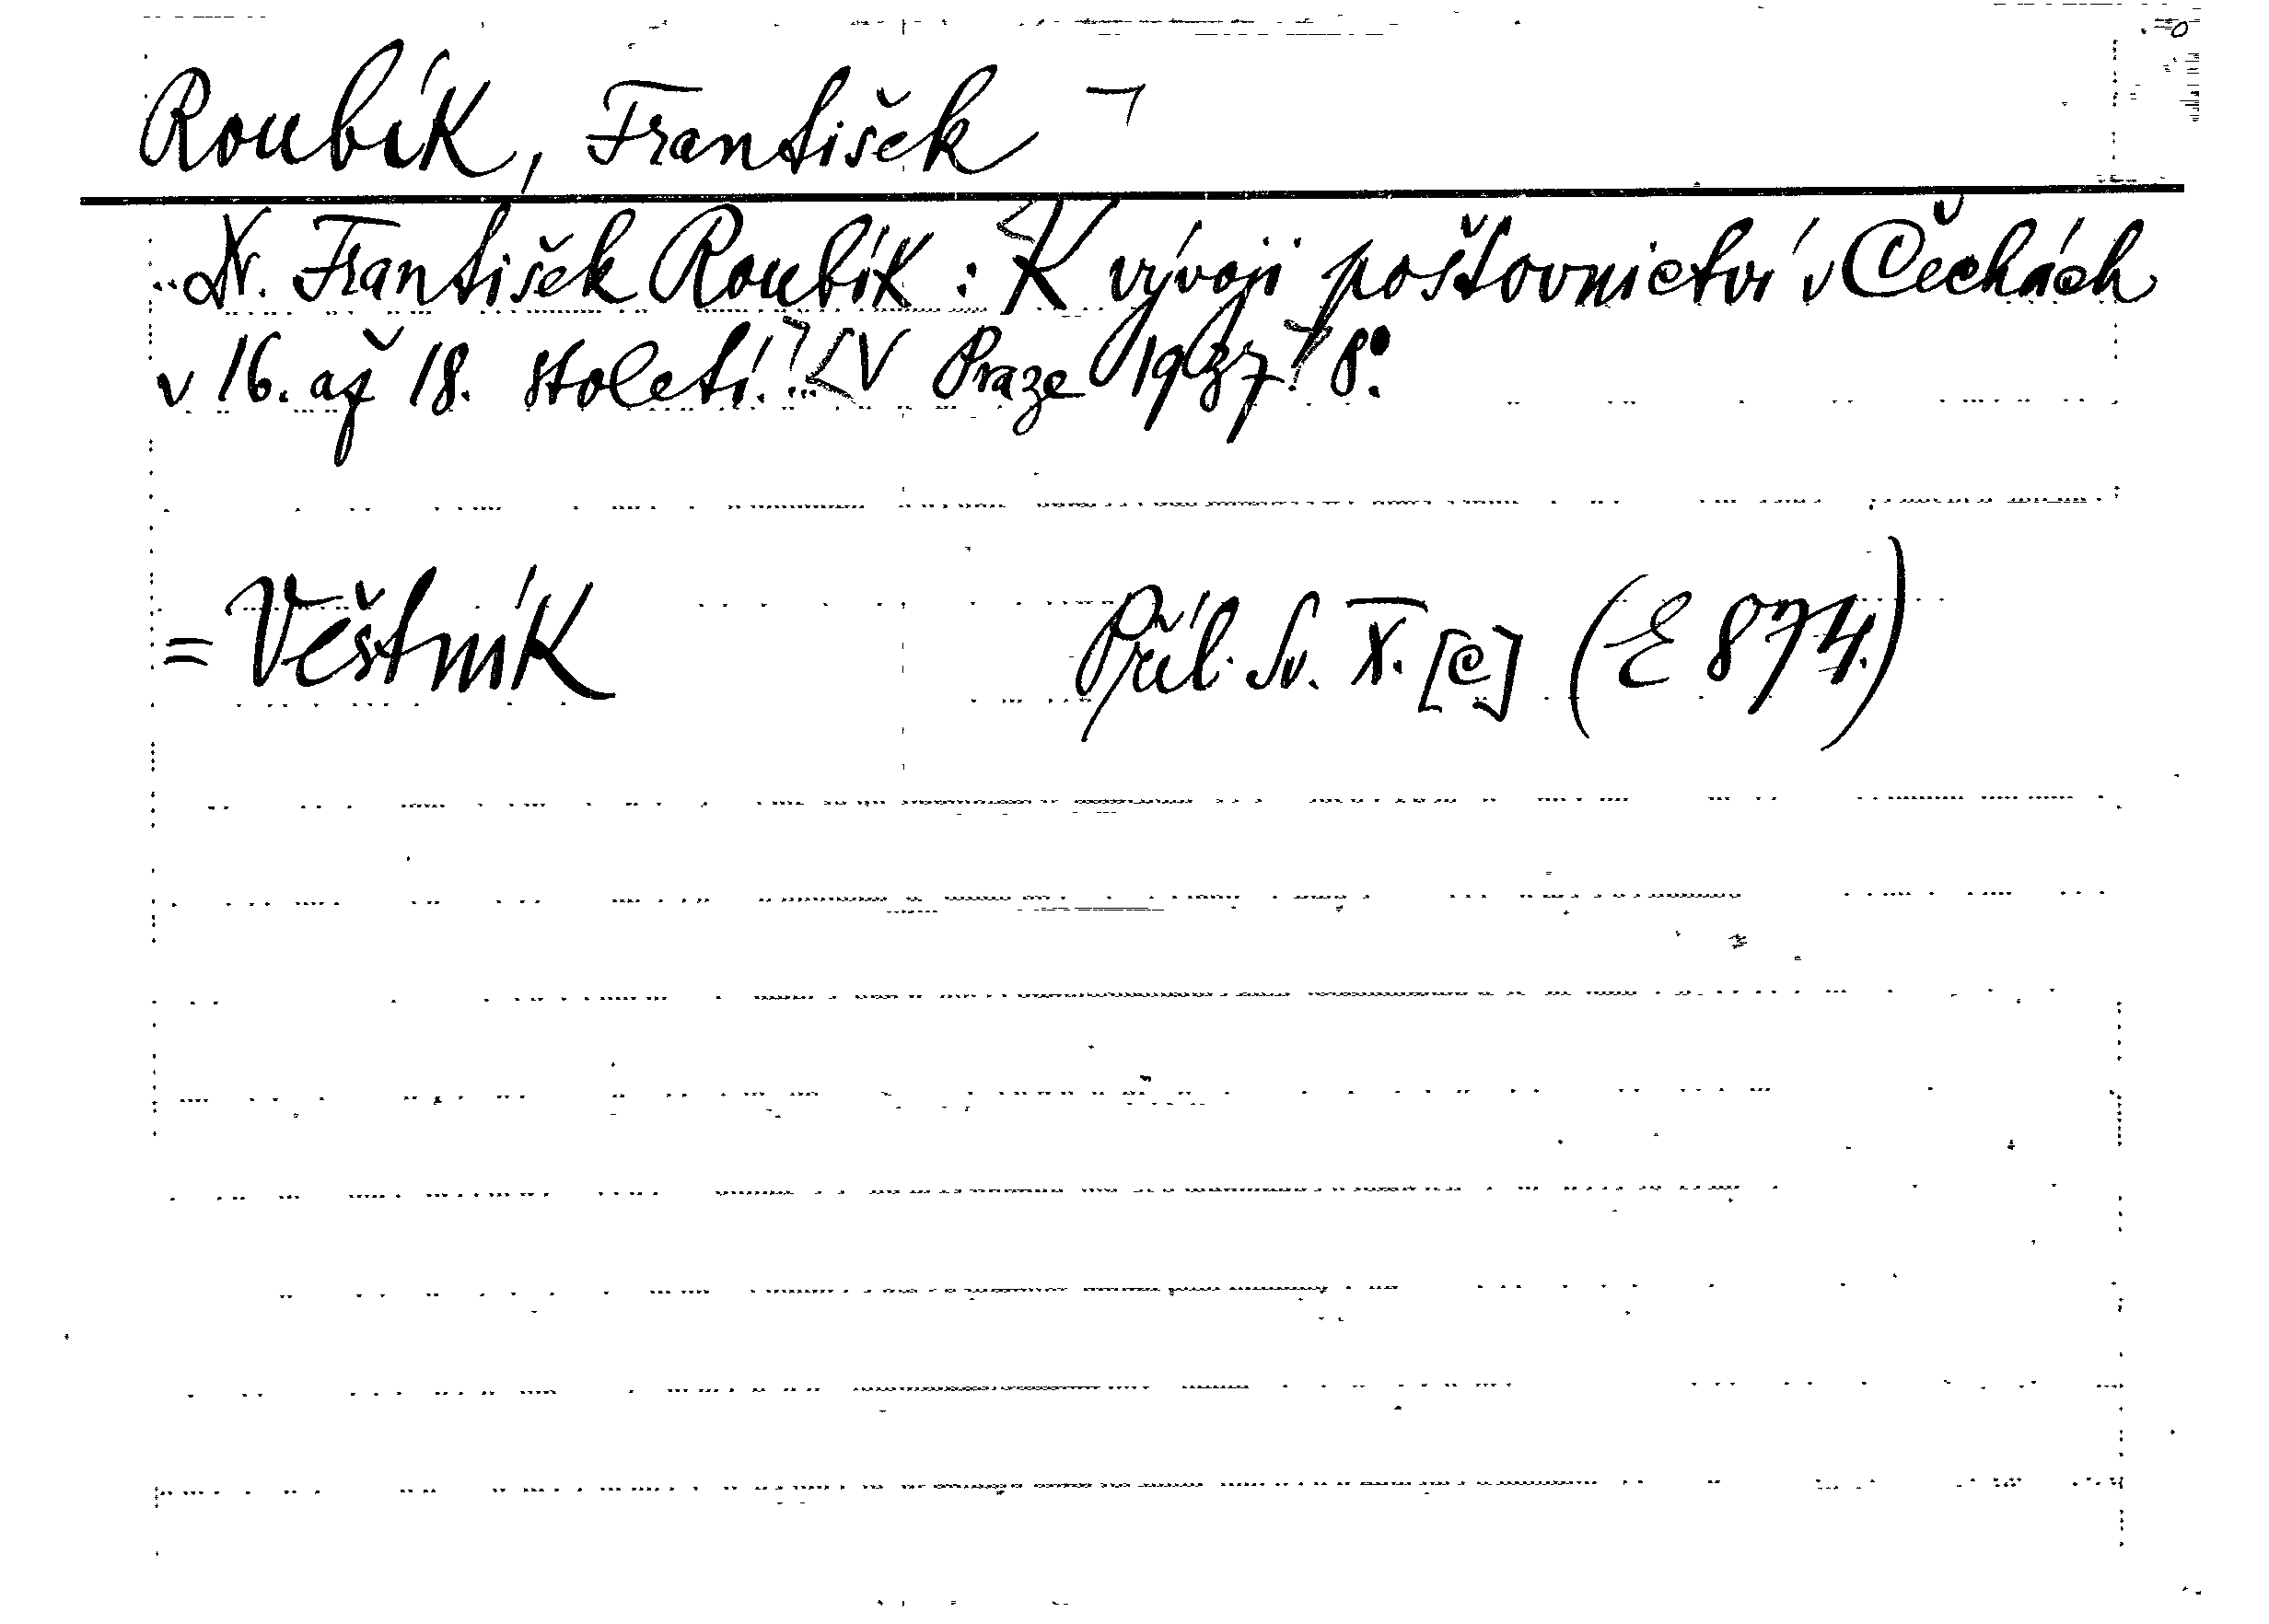 Roubík, František
Dr. František Roubík: K vývoji poštovnictví v Čechách
v 16. až 18. století. V Praze 1937 8°.
= Věstník Příl. Sv. X. [e] (E 874.)